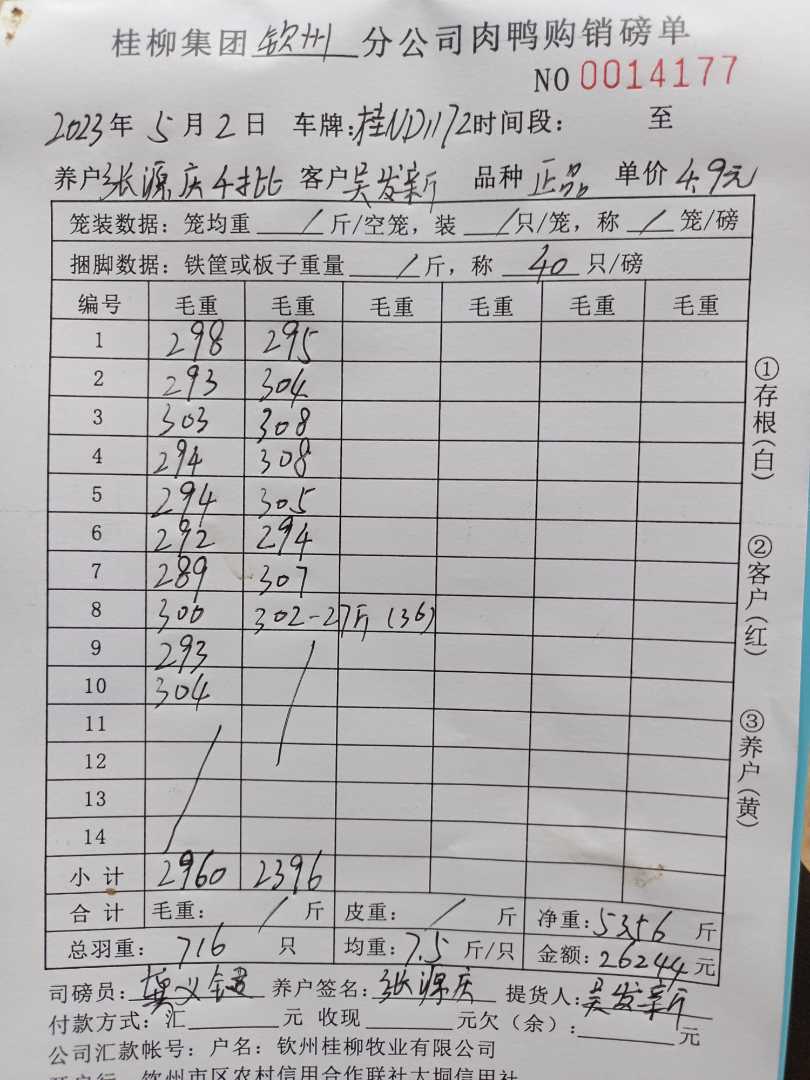 桂柳集团钦州分公司肉鸭购销磅单
NO 0014177
2023年5月2日 车牌:桂ND1172时间段: 至
养户张源庆4批 客户吴发新 品种 正品 单价 4.9元
笼装数据：笼均重 / 斤/空笼，装 / 只/笼，称 / 笼/磅
捆脚数据：铁筐或板子重量 / 斤，称 40 只/磅
编号 毛重 毛重 毛重 毛重 毛重 毛重
1 298 295
2 293 304
3 303 308
4 294 308
5 294 305
6 292 294
7 289 307
8 300 302-27斤(36)
9 293
10 304
11
12
13
14
小计 2960 2396
合计 毛重： / 斤 皮重： / 斤 净重：5356 斤
总羽重： 716 只 均重：7.5 斤/只 金额：26244元
司磅员： 养户签名：张源庆 提货人：吴发新
付款方式：汇 元 收现 元欠（余）： 元
公司汇款帐号：户名：钦州桂柳牧业有限公司
开户行：钦州市区农村信用合作联社大垌信用社
①存根(白)
②客户(红)
③养户(黄)